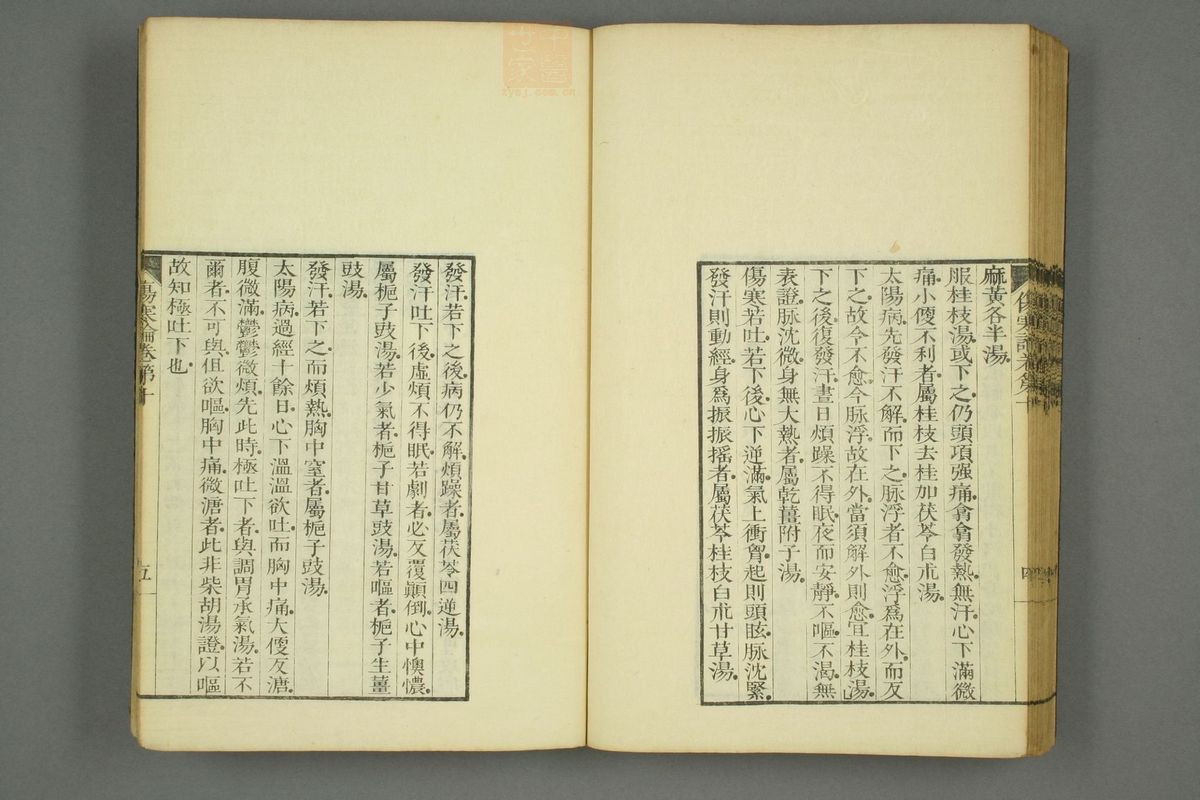 麻黃各半湯
服桂枝湯或下之仍頭項强痛翕翕發熱無汗心下滿微
痛小便不利者屬桂枝去桂加茯苓白朮湯
太陽病先發汗不解而下之脉浮者不愈浮爲在外而反
下之故令不愈今脉浮故在外當須解外則愈宜桂枝湯
下之後復發汗晝日煩躁不得眠夜而安靜不嘔不渴無
表證脉沈微身無大熱者屬乾薑附子湯
傷寒若吐若下後心下逆滿氣上衝胷起則頭眩脉沈緊
發汗則動經身爲振振搖者屬茯苓桂枝白朮甘草湯
發汗若下之後病仍不解煩躁者屬茯苓四逆湯
發汗吐下後虛煩不得眠若劇者必反覆顚倒心中懊憹
屬梔子豉湯若少氣者梔子甘草豉湯若嘔者梔子生薑
豉湯
發汗若下之而煩熱胸中窒者屬梔子豉湯
太陽病過經十餘日心下溫溫欲吐而胸中痛大便反溏
腹微滿鬱鬱微煩先此時極吐下者與調胃承氣湯若不
爾者不可與但欲嘔胸中痛微溏者此非柴胡湯證以嘔
故知極吐下也
五
四
中醫世家
zysj.com.cn